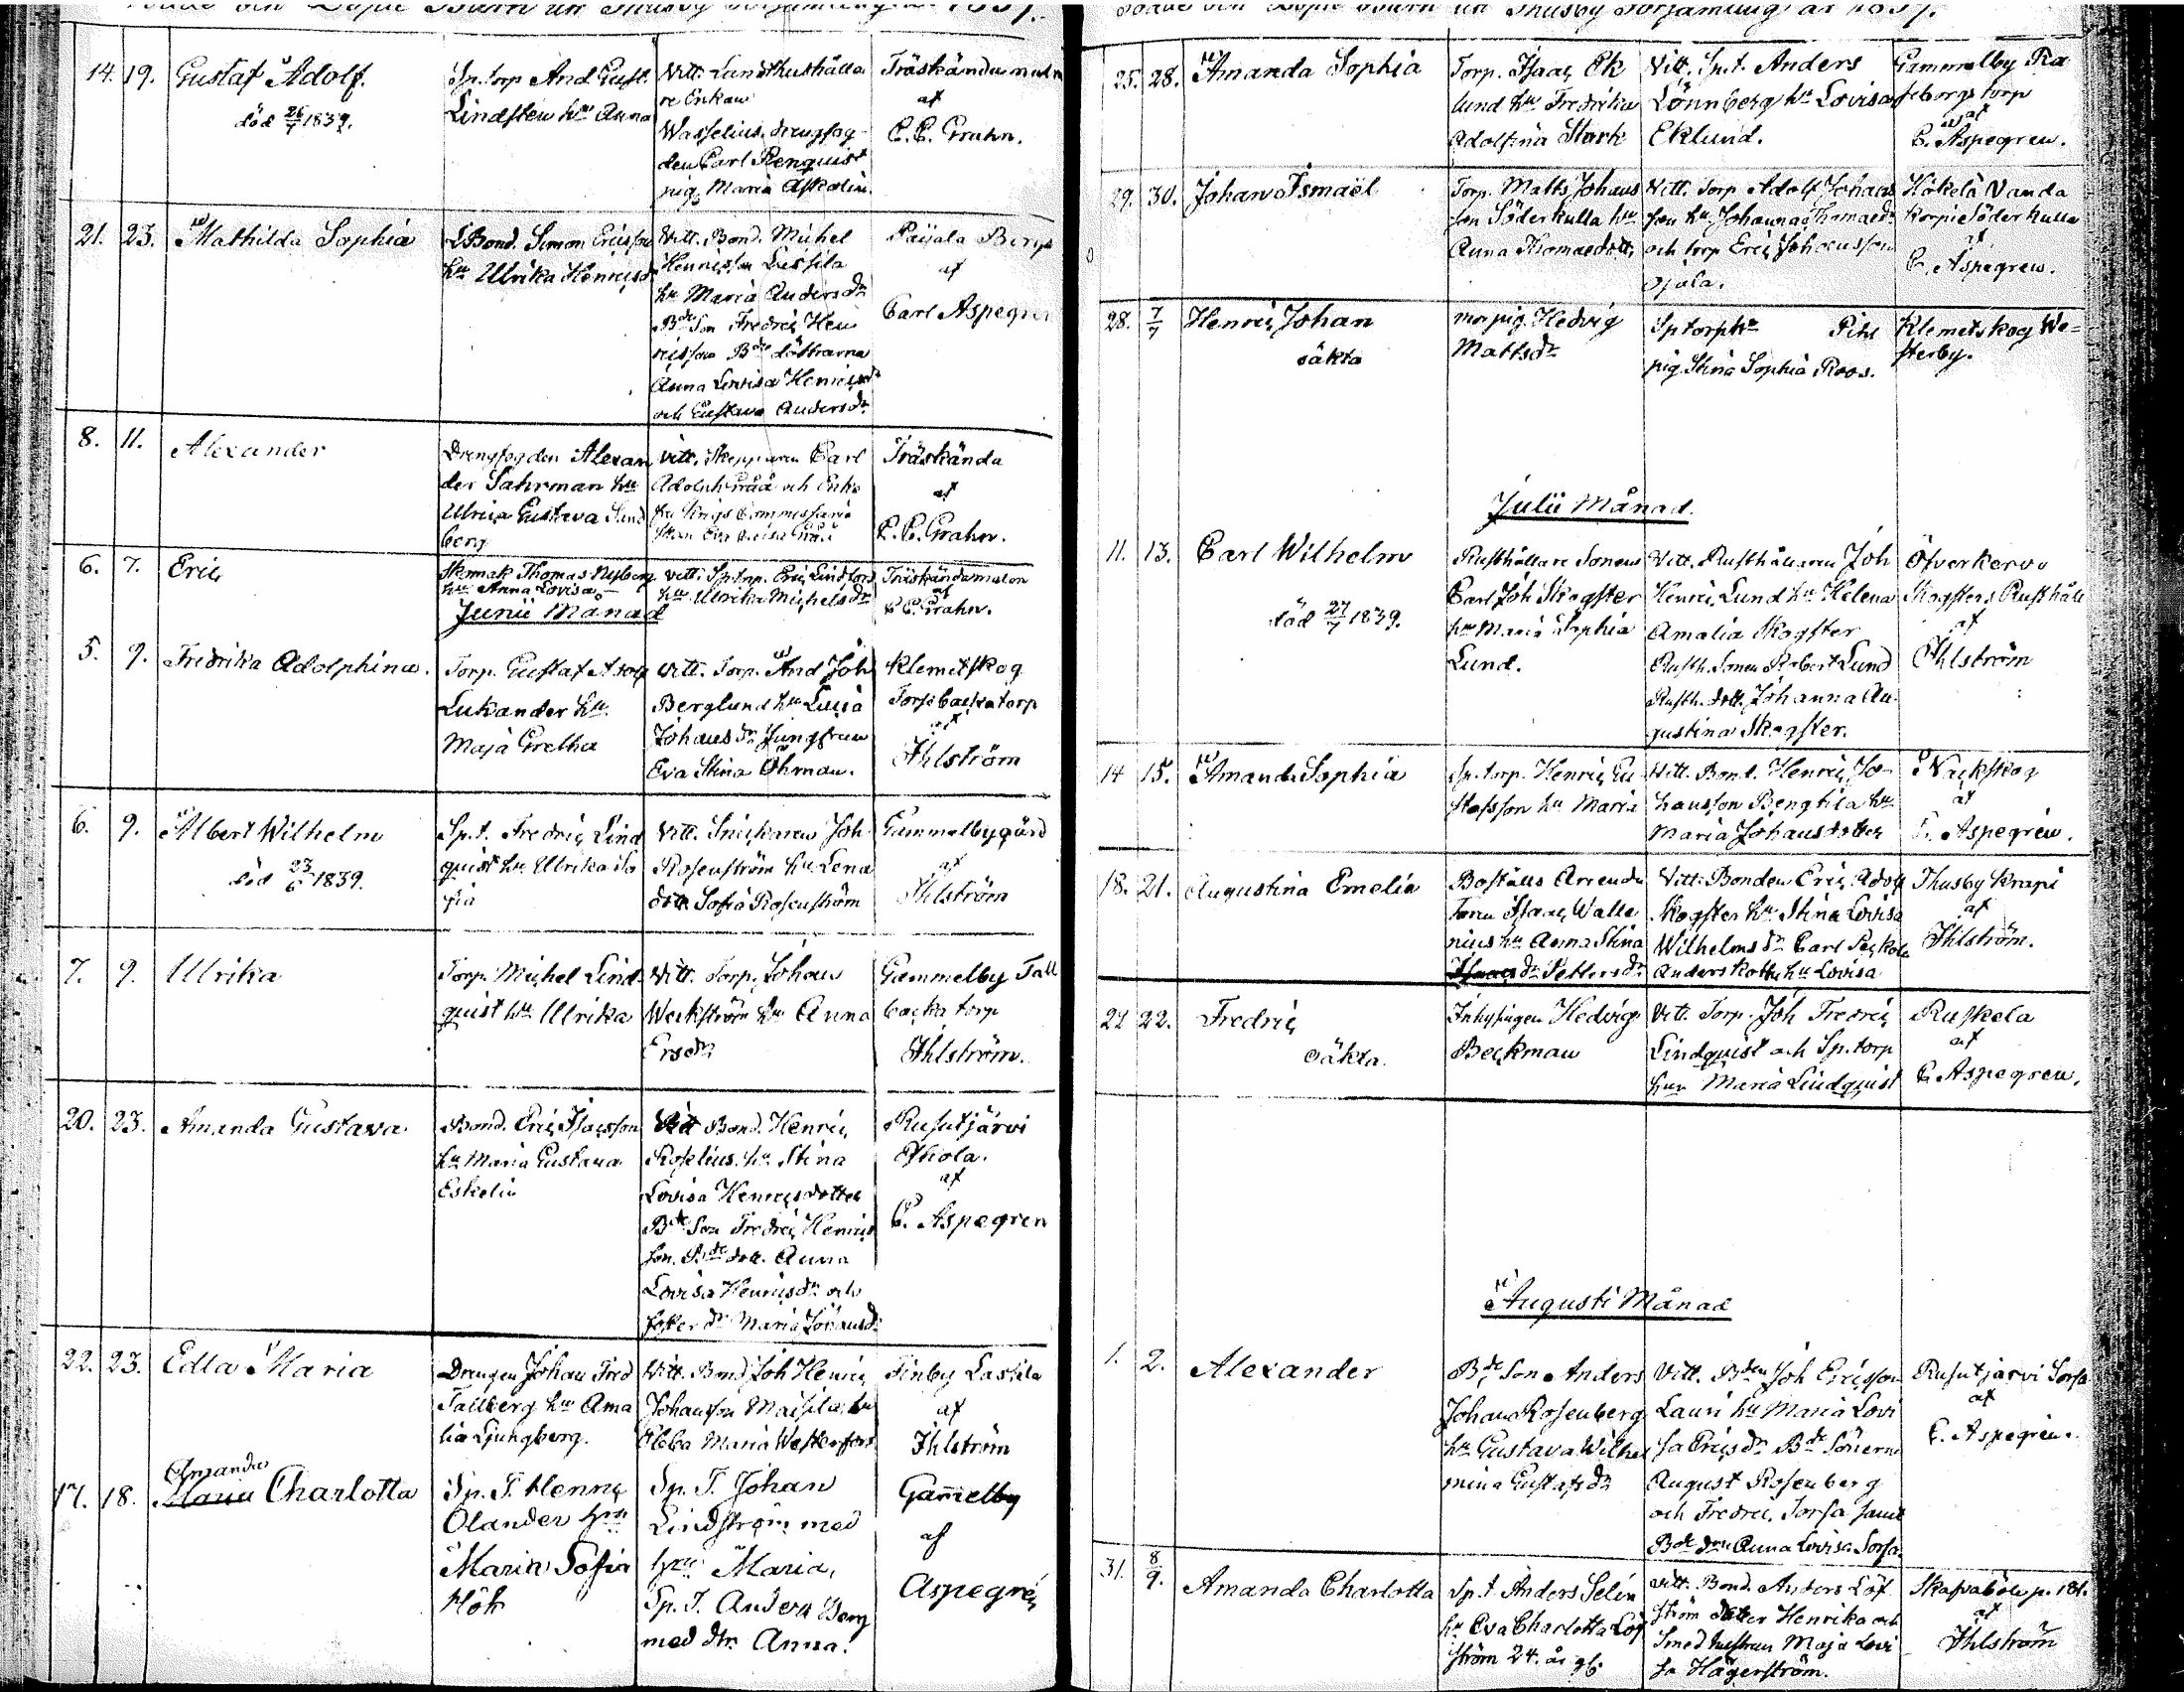 14. 19. Gustaf Adolf.
död 26/7 1839.
Sp. torp And Gust.
Lindsten hu Anna
Vitt. Landthushålla
re Enkan
Wasselius, drengfog-
den Carl Renquist
pig. Maria Askolin.
Träskända malm
af
C. C. Grahn.
21. 23. Mathilda Sophia
Bond. Simon Ericsson
hu Ulrika Henricsdr
Vitt. Bond. Michel
Henricsson Lassila
hu Maria Andersdr
Bde Son Fredric Hen
ricsson Bde döttrarna
Anna Lovisa Henricsdr
och Gustava Andersdr
Paijala Bergs
af
Carl Aspegren
8. 11. Alexander
Drengfogden Alexan
der Sahrman hu
Ulrica Gustava Sand
berg
Vitt. Skepparen Carl
Adolph och Enke
fru Tings Commissaria
Träskända
af
C. C. Grahn.
6. 7. Eric
Skomak. Thomas Nyberg
hu Anna Lovisa
Vitt. Sp. torp. Eric Lindfors
hu Ulrika Michelsdr
Träskändamalm
af
C. C. Grahn.
Junii Månad
5. 9. Fredrika Adolphina.
Torp. Gustaf Adolf
Lukander hu
Maja Gretha
Vitt. Torp. And Joh
Berglund hu Lovisa
Johansdr Jungfrun
Eva Stina Öhman.
Klemetskog
Torsbacka torp
af
Ihlström
6. 9. Albert Wilhelm
död 23/6 1839.
Sp. t. Fredric Lind
quist hu Ulrika So
fia
Vitt. Snickaren Joh
Rosenström hu Lena
dott. Sofia Rosenström
Gammelbygård
af
Ihlström
7. 9. Ulrika
Torp. Michel Lind
quist hu Ulrika
Vitt. Torp. Johan
Weckström hu Anna
Ersdr
Gammelby Tall
backa torp
Ihlström.
20. 23. Amanda Gustava
Bond. Eric Isacsson
hu Maria Gustava
Eskelin
Vitt Bond. Henric
Roselius. hu Stina
Lovisa Henricsdotter
Bde Son Fredric Henrics
son. Bde dott. Anna
Lovisa Henricsdr och
foster dr Maria Johansdr
Rusutjärvi
Ohkola.
af
C. Aspegren
22. 23. Edla Maria
Drengen Johan Fred
Tallberg hu Ama
lia Ljungberg.
Vitt. Bond Joh Henric
Johansson Maisila hu
Ebba Maria Westerfors
Finby Lassila
af
Ihlström
17. 18. Amanda
Maria Charlotta
Sp. T. Henric
Olander hru
Maria Sofia
Hök
Sp. T. Johan
Lindström med
hru Maria,
Sp. T. Anders Berg
med dtr. Anna.
Gamelby
af
Aspegrén
25. 28. Amanda Sophia
Torp. Isaac Ek
lund hu Fredrika
Adolfina Stark
Vitt. Sp. t. Anders
Lönnberg hu Lovisa
Eklund.
Gammelby Ra
seborgs torp
af
C. Aspegren.
29. 30. Johan Ismaël
Torp. Matts Johans
son Söderkulla hu
Anna Thomaedott,
Vitt. Torp Adolf Johans
son hu Johanna Thomaedr
och torp Eric Johansson
Ojala.
Hökelä Vanda
Korpi Söderkulla
af
C. Aspegren.
28. 7/7 Henric Johan
oäkta
mor pig. Hedvig
Mattsdr
Sptorphu Pihl
pig. Stina Sophia Roos.
Klemetskog We=
sterby.
Julii Månad.
11. 13. Carl Wilhelm
död 27/7 1839.
Rusthållare Sonen
Carl Joh Skogster
hu Maria Sophia
Lund.
Vitt. Rusthållaren Joh
Henric Lund hu Helena
Amalia Skogster
Rusth. Sonen Robert Lund
Rusth. dott. Johanna Au-
gustina Skogster.
Öfverkervo
Skogsters Rusthåll
af
Ihlström
14 15. Amanda Sophia
Sp. torp. Henric Gu
stafsson hu Maria
Vitt. Bond. Henric Jo-
hansson Bengtila hu
Maria Johansdotter
Nackskog
af
C. Aspegren.
18. 21. Augustina Emelia
Boställs Arrenda
toren Isaac Walle
nius hu Anna Stina
Isaacsdr Pettersdr
Vitt. Bonden Eric Adolf
Skogster hu Stina Lovisa
Wilhelmsdr Carl
Anders hu Lovisa
Thusby Krapi
af
Ihlström.
21 22. Fredric
oäkta.
Inhysingen Hedvig
Beckman
Vitt. Torp. Joh Fredric
Lindquist och Sp. torp
hun Maria Lindquist
Ruskela
af
C. Aspegren.
Augusti Månad
1. 2. Alexander
Bde Son Anders
Johan Rosenberg
hu Gustava Wilhel
mina Gustafsdr
Vitt. Bden Joh Ericsson
Lauri hu Maria Lovi
sa Ericsdr Bde Sönern
August Rosenberg
och Fredric Sorsa samt
Bde drn Anna Lovisa Sorsa.
Rusutjärvi Sorsa
af
C. Aspegren.
31. 8/9. Amanda Charlotta
Sp. t. Anders Selin
hu Eva Charlotta Löf
ström 24. år gl.
Vitt. Bond. Anders Löf
ström dotter Henrika och
Smedhustrun Maja Lovi
sa Hägerström.
Skafvaböle p. 181.
af
Ihlström